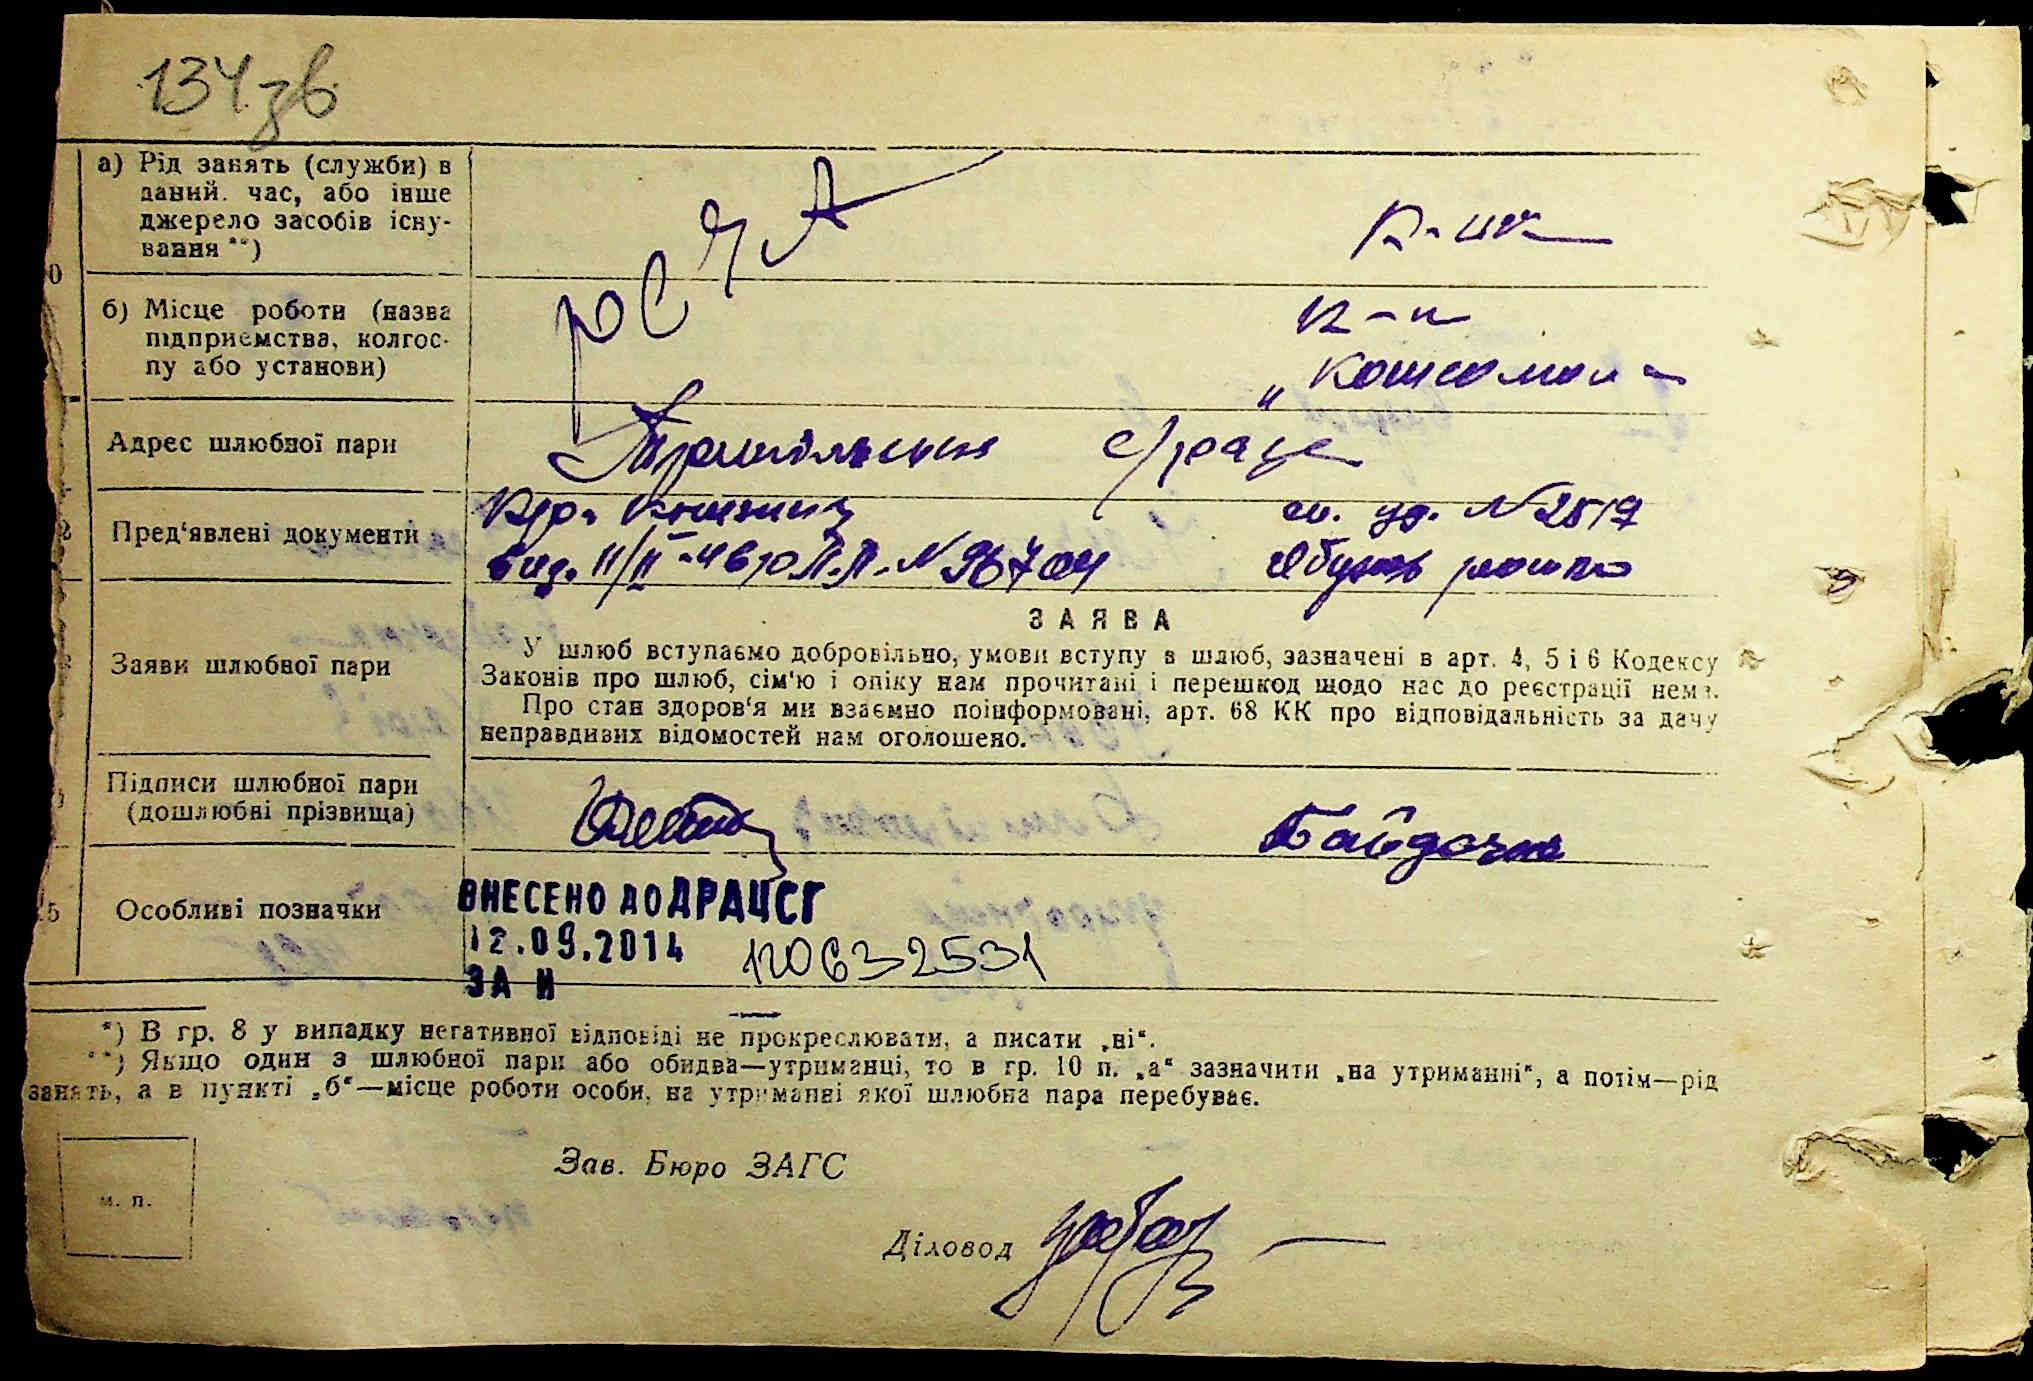 134 зв
а) Рід занять (служби) в
даний час, або інше
джерело засобів існу-
вання **)
РСЧА
к-ця
б) Місце роботи (назва
підприємства, колгос-
пу або установи)
к-п
Адрес шлюбної пари
Пред'явлені документи
Кр. книжка
вид. 11/II-46 р П.П. № 96704
св. уд. № 2517
Заяви шлюбної пари
ЗАЯВА
У шлюб вступаємо добровільно, умови вступу в шлюб, зазначені в арт. 4, 5 і 6 Кодексу
Законів про шлюб, сім'ю і опіку нам прочитані і перешкод щодо нас до реєстрації нема.
Про стан здоров'я ми взаємно поінформовані, арт. 68 КК про відповідальність за дачу
неправдивих відомостей нам оголошено.
Підписи шлюбної пари
(дошлюбні прізвища)
Байдачна
5 Особливі позначки
ВНЕСЕНО ДО ДРАЦСГ
12.09.2014
ЗА N 120632531
*) В гр. 8 у випадку негативної відповіді не прокреслювати, а писати „ні“.
**) Якщо один з шлюбної пари або обидва—утриманці, то в гр. 10 п. „а“ зазначити „на утриманні“, а потім—рід
занять, а в пункті „б“—місце роботи особи, на утриманні якої шлюбна пара перебуває.
м. п.
Зав. Бюро ЗАГС
Діловод